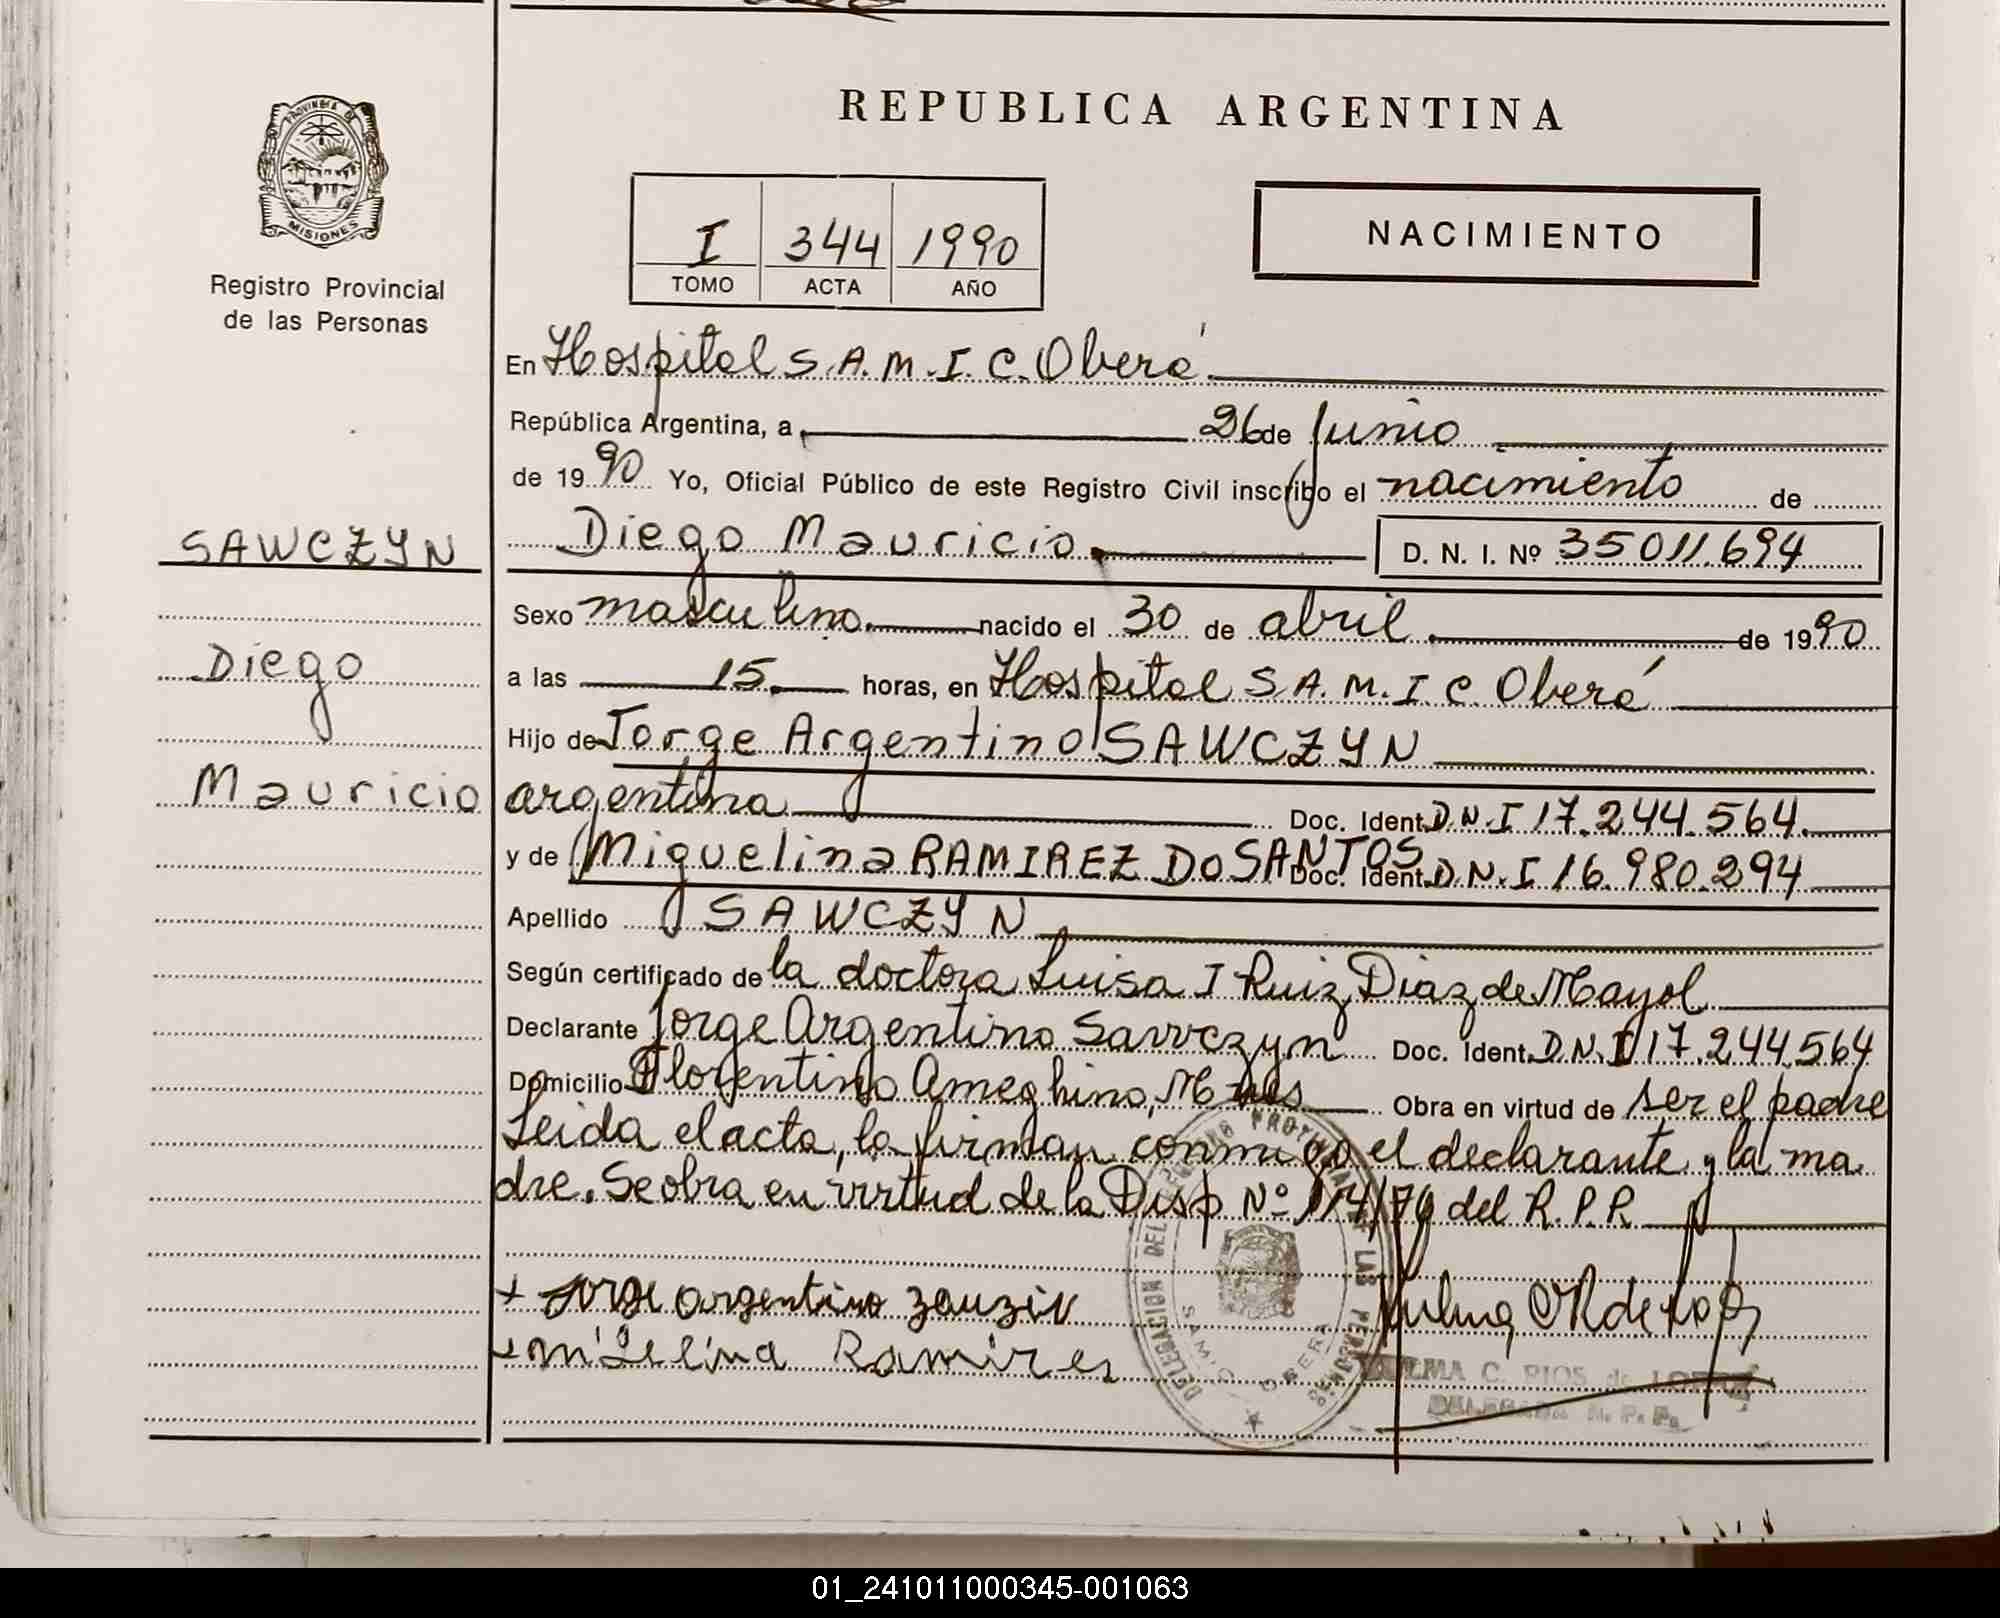 REPUBLICA ARGENTINA
PROVINCIA DE
MISIONES
Registro Provincial
de las Personas
I 344 1990
TOMO ACTA AÑO
NACIMIENTO
En Hospital S.A.M.I.C. Oberá
República Argentina, a 26 de Junio
de 1990 Yo, Oficial Público de este Registro Civil inscribo el nacimiento de
SAWCZYN
Diego
Mauricio
Diego Mauricio. D. N. I. Nº 35011.694
Sexo masculino. nacido el 30 de abril. de 1990
a las 15. horas, en Hospital S.A.M.I.C. Oberá
Hijo de Jorge Argentino SAWCZYN
argentina Doc. Ident. D.N.I 17.244.564.
y de Miguelina RAMIREZ DO SANTOS Doc. Ident. D.N.I 16.980.294
Apellido SAWCZYN
Según certificado de la doctora Luisa I Ruiz Diaz de Mayol
Declarante Jorge Argentino Sawczyn Doc. Ident. D.N.I 17.244.564
Domicilio Florentino Ameghino, Mnes Obra en virtud de ser el padre
Leida el acta, la firman conmigo el declarante y la ma
dre. Se obra en virtud de la Disp Nº 114/76 del R.P.R.
+ Jorge argentino zauzin
+ Ramires
DELEGACION DEL REGISTRO PROVINCIAL DE LAS PERSONAS
SAMIC OBERA
ZULMA C. RIOS de LOPEZ
01_241011000345-001063